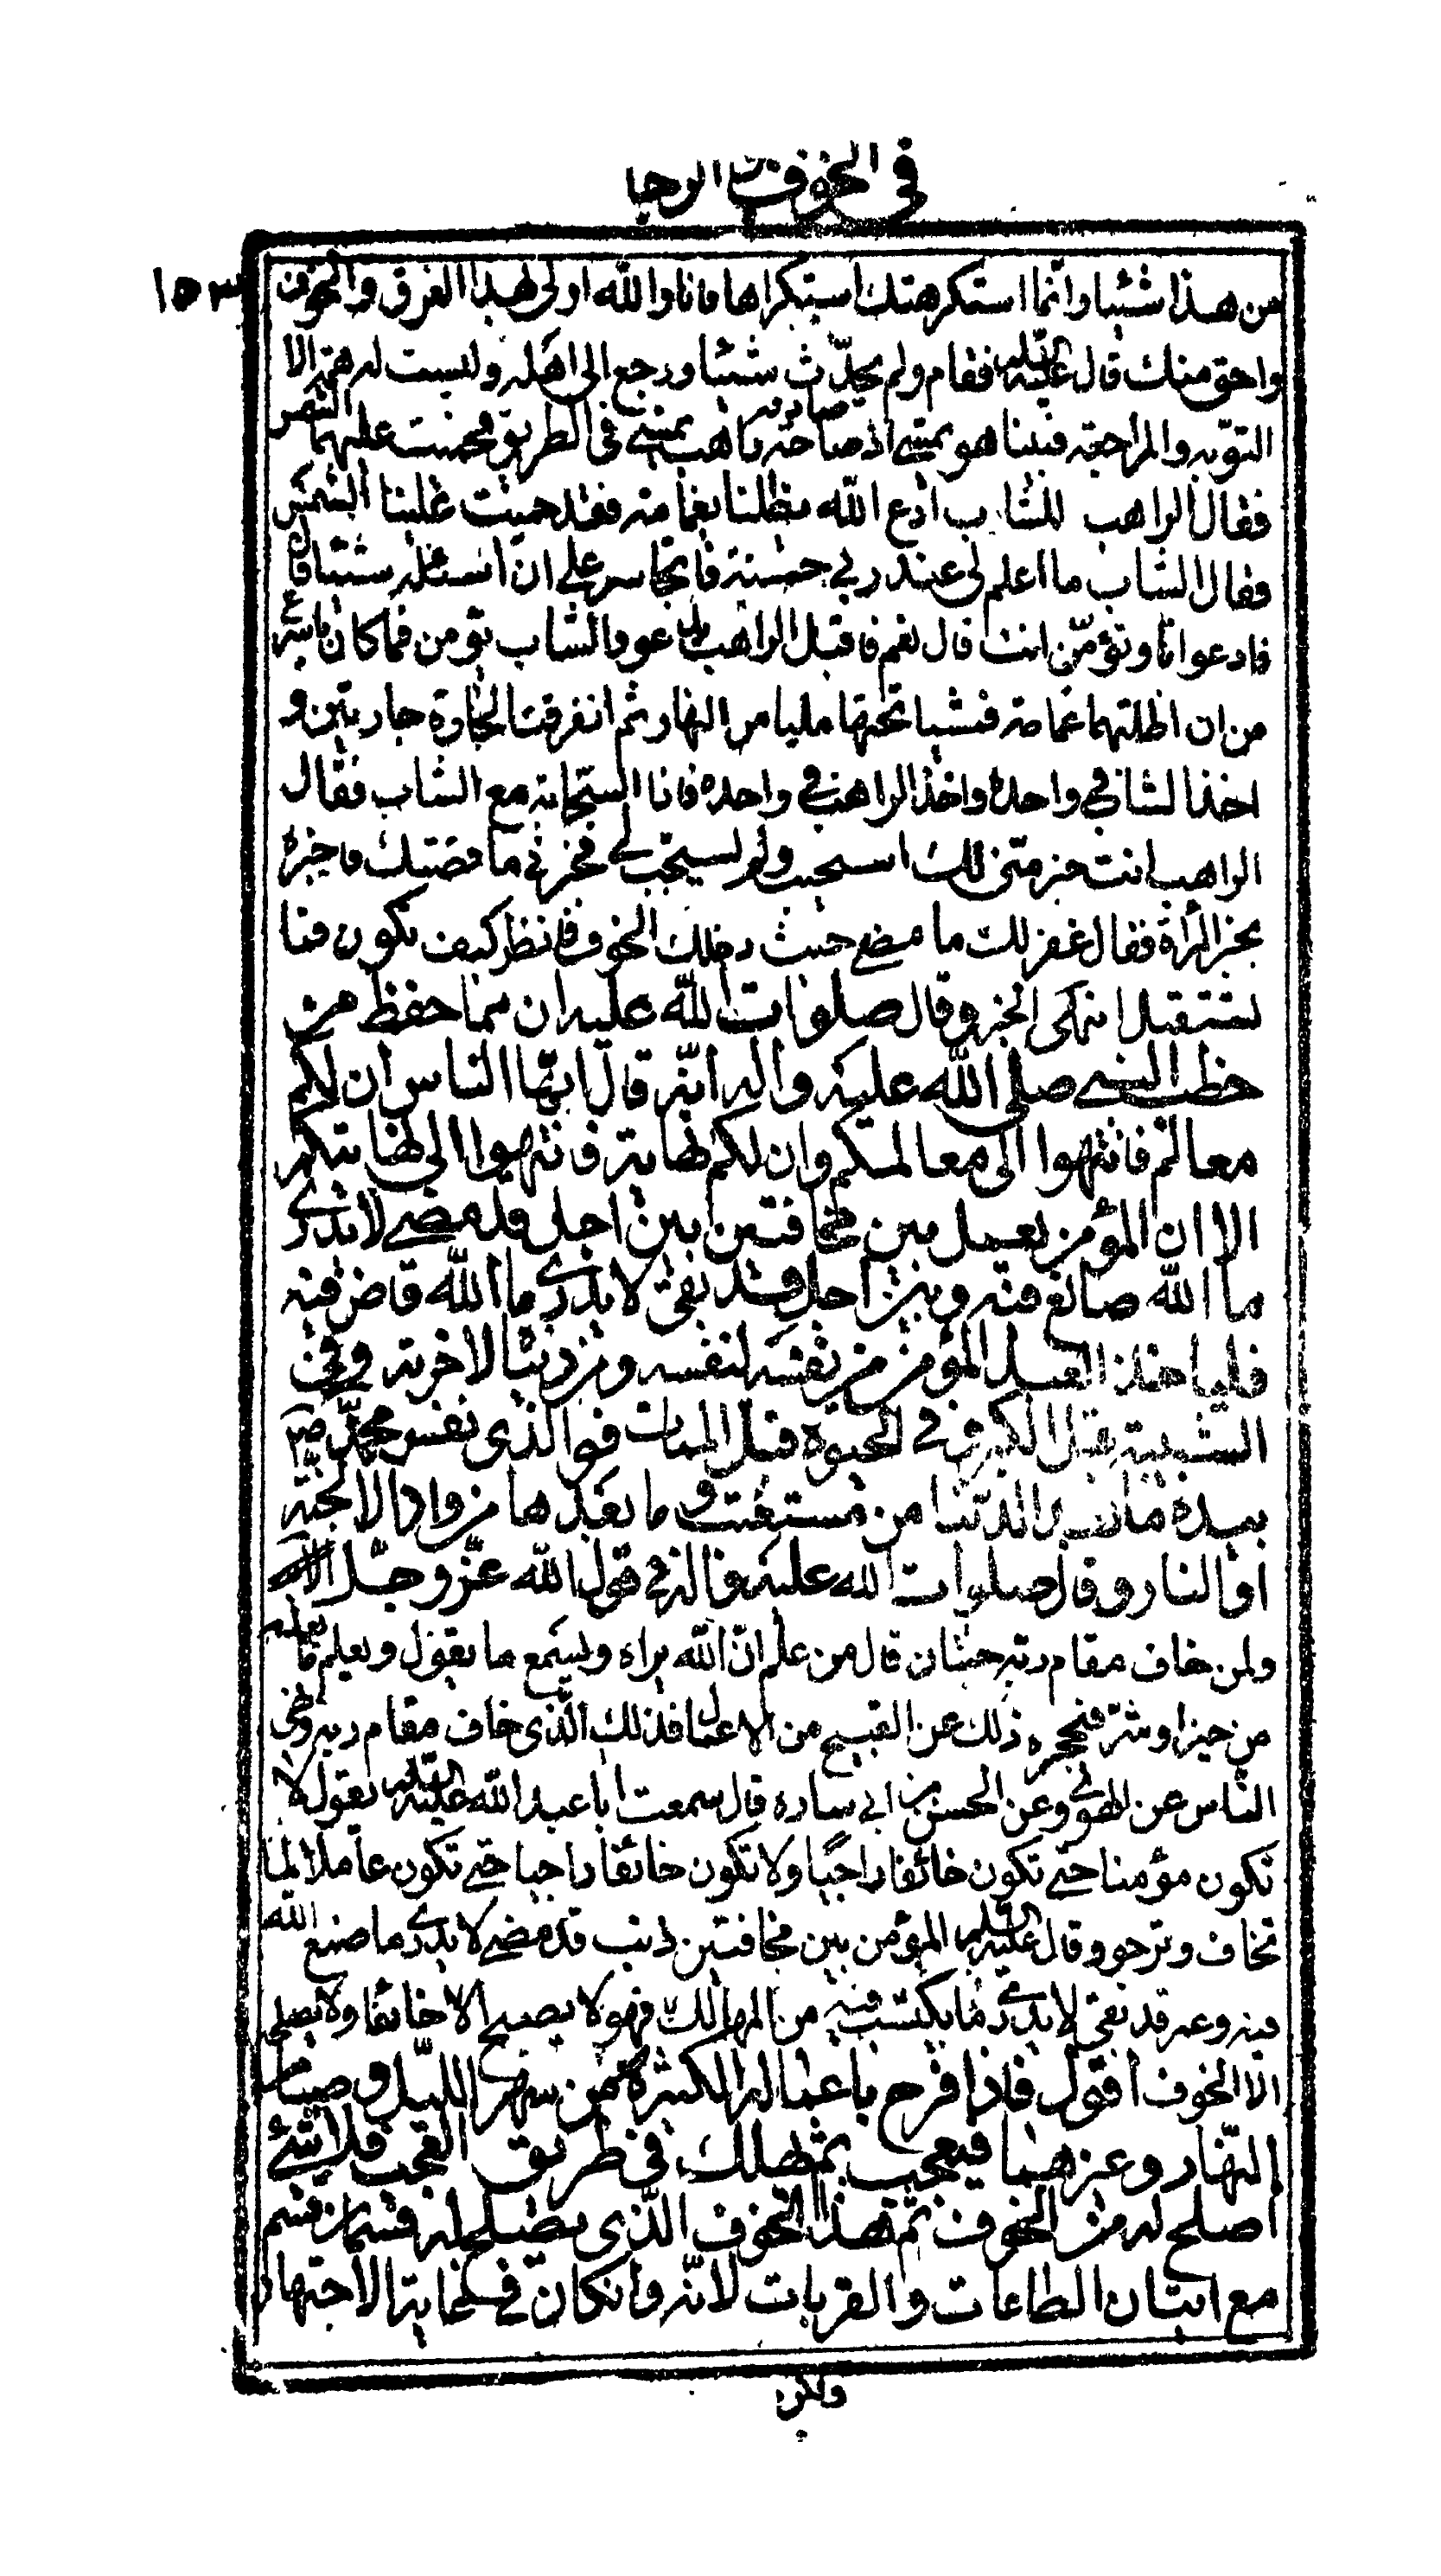 في الخوف والرجا
١٥٣
من هذا شيئا وانّما استكرهتك استكراها فانا والله اولى بهذا الفرق والخوف
واحق منك قال عليه السلام فقام ولم يحدّث شيئا ورجع الى اهله وليست له همة الا
التوبه والمراجعه فبينا هو يمشي اذ صادفه راهب يمشي في الطريق فحميت عليهما الشمس
فقال الراهب للشاب ادع الله يظلنا بغمامة فقد حميت علينا الشمس
فقال الشاب ما اعلم لي عند ربي حسنة فاتجاسر على ان اسئله شيئا قال
فادعو انا وتؤمّن انت قال نعم فاقبل الراهب يدعو والشاب يؤمن فما كان باسرع
من ان اظلتهما غمامة فمشيا تحتها مليا من النهار ثم انفرقت الجادة جادتين و
اخذ الشاب في واحدة واخذ الراهب في واحده فاذا السحابة مع الشاب فقال
الراهب انت خير منى لك استجيب ولم يستجب لي فخبرني ما قصتك فاخبره
بخبر المرأة فقال غفر لك ما مضى حيث دخلك الخوف فانظر كيف تكون فيما
تستقبل انتهى الخبر وقال صلوات الله عليه ان مما حفظ من
خطب النبي صلى الله عليه واله انّه قال ايّها الناس ان لكم
معالم فانتهوا الى معالمكم وان لكم نهاية فانتهوا الى نهايتكم
الا ان المؤمن يعمل بين مخافتين بين اجل قد مضى لا يدري
ما الله صانع فيه وبين اجل قد بقى لا يدري ما الله قاض فيه
فلياخذ العبد المؤمن من نفسه لنفسه ومن دنياه لاخرته وفي
الشبيبة قبل الكبر وفي الحيوة قبل الممات فو الذي نفس محمد
بيده ما بعد الدنيا من مستعتب وما بعدها من دار الا الجنّة
او النار وقال صلوات الله عليه واله في قول الله عزّ وجلّ
ولمن خاف مقام ربّه جنتان قال من علم انّ الله يراه ويسمع ما يقول ويعلم ما يعمله
من خير او شرّ فيحجزه ذلك عن القبيح من الاعمال فذلك الّذي خاف مقام ربه ونهى
النّاس عن الهوى وعن الحسن بن ابي ساره قال سمعت ابا عبد الله عليه السلام يقول لا
تكون مؤمنا حتى تكون خائفا راجيا ولا تكون خائفا راجيا حتى تكون عاملا لما
تخاف وترجو وقال عليه السلام المؤمن بين مخافتين ذنب قد مضى لا يدري ما صنع الله
فيه وعمر قد بقى لا يدري ما يكتسب فيه من المهالك فهو لا يصبح الا خائفا ولا يصلحه
الا الخوف اقول فاذا فرح باعماله الكثيرة من سهر الليل وصيام
النّهار وغيرهما فيعجب بها هلك في طريق العجب فلا شيء
اصلح له من الخوف ثم هذا الخوف الّذي يصلح له قسمان قسم
مع اتيان الطاعات والقربات لانّه وان كان في غاية الاجتهاد
ولكن